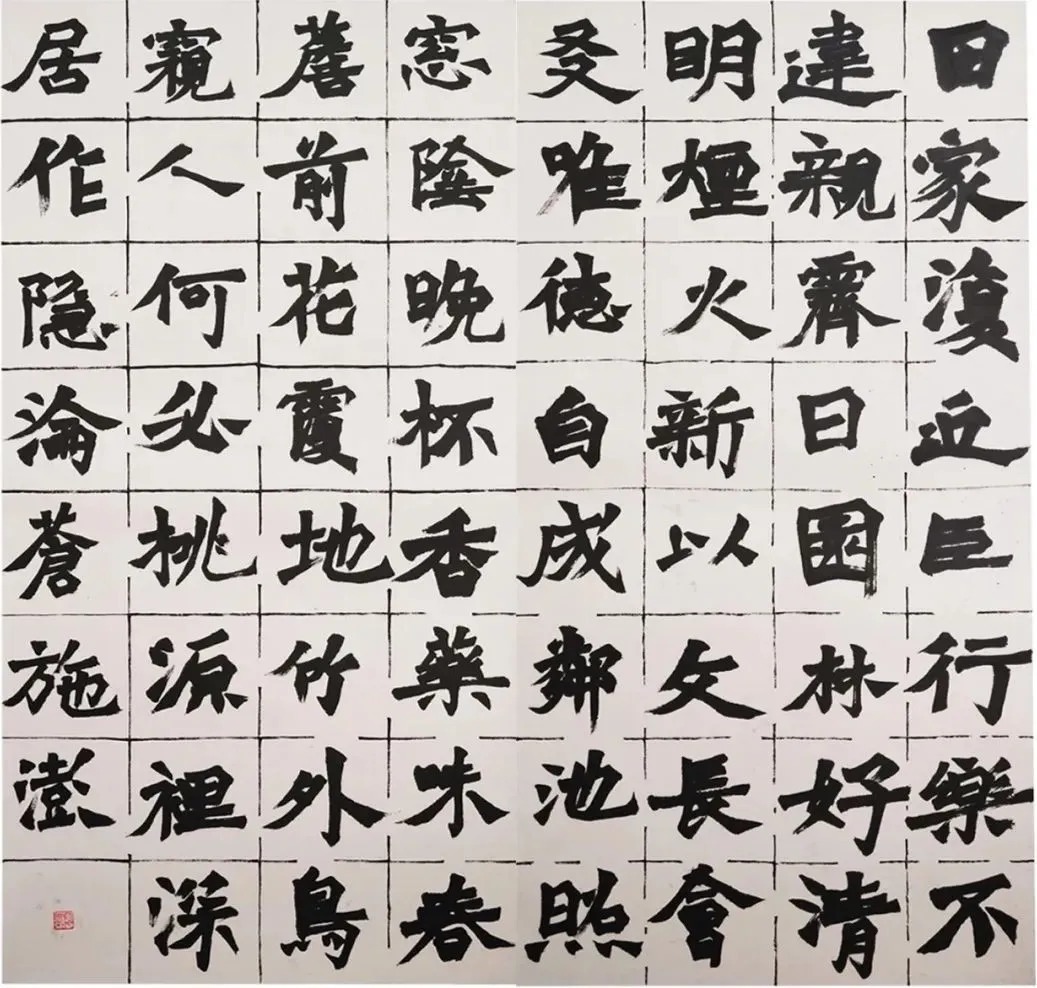 田家復近臣行樂不
違親霽日園林好清
明煙火新以文長會
友唯德自成鄰池照
窓陰晚杯香藥味春
簷前花覆地竹外鳥
窺人何必桃源裡深
居作隐淪蒼施澎